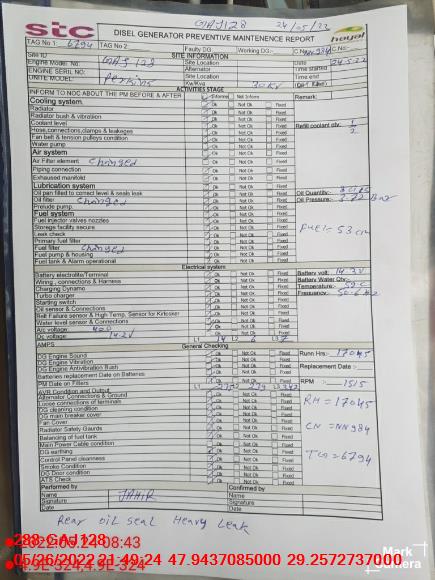 GAJ128 24/05/22
stc
DISEL GENERATOR PREVENTIVE MAINTENENCE REPORT
hoyal
TAG No 1: 6794 TAG No 2: Faulty DG Working DG:- C.No NN984 C.No:-
Site ID SITE INFORMATION
GAJ 128 Site Location Date 24.5.22
Engine Model. No: Alternator Time started
ENGINE SERIL NO: Site Location Time end
UNITE MODEL: Perkins Kw/Kva 30 KV
ACTIVITIES STAGE
INFORM TO NOC ABOUT THE PM BEFORE & AFTER Informe Not Inform Remark:
Cooling system Ok Not Ok Fixed
Radiator Ok Not Ok Fixed
Radiator bush & vibration Ok Not Ok Fixed
Coolant level Ok Not Ok Fixed Refill coolant qty: 1/2
Hose,connections,clamps & leakages Ok Not Ok Fixed
Fan belt & tension pulleys condition Ok Not Ok Fixed
Water pump Ok Not Ok Fixed
Air system
Air Filter element changed Ok Not Ok Fixed
Piping connection Ok Not Ok Fixed
Exhausted manifold Ok Not Ok Fixed
Lubrication system
Oil pan filled to correct level & seak leak Ok Not Ok Fixed Oil Quantity:-
Oil filter changed Ok Not Ok Fixed Oil Pressure:- Bar
Prelude pump. Ok Not Ok Fixed
Fuel system
Fuel injector valves nozzles Ok Not Ok Fixed
Storage facility secure Ok Not Ok Fixed FUEL= 53 cm
Leak check Ok Not Ok Fixed
Primary fuel filter Ok Not Ok Fixed
Fuel filter changed Ok Not Ok Fixed
Fuel pump & housing Ok Not Ok Fixed
Fuel tank & Alarm operational Ok Not Ok Fixed
Electrical system
Battery electrolte/Terminal Ok Not Ok Fixed Battery volt: 14.3V
Wiring , connections & Harness Ok Not Ok Fixed Battery Water Qty:-
Charging Dynamo Ok Not Ok Fixed Temperature:- 59-C
Turbo charger Ok Not Ok Fixed Frequancy:- 50.6 Hz
Starting switch Ok Not Ok Fixed
Oil sensor & Connections Ok Not Ok Fixed
Belt Failure sensor & High Temp, Sensor for Kirlosker Ok Not Ok Fixed
Water level sensor & Connections Ok Not Ok Fixed
A/c voltage: 400
Dc voltage: 14.2V
AMPS L1 14 L2 6 L3 7
General Checking
DG Engine Sound Ok Not Ok Fixed Runn Hrs:- 17045
DG Engine Vibration Ok Not Ok Fixed
DG Engine Antivibration Bush Ok Not Ok Fixed Replacement Date :-
Batteries replacement Date on Batteries Ok Not Ok Fixed
PM Date on Filters Ok Not Ok Fixed RPM :- 1515
AVR Condition and Output L1 L2 239 L3 242
Alternator Connections & Ground Ok Not Ok Fixed
Loose connections of terminals Ok Not Ok Fixed RH = 17045
DG cleaning condition Ok Not Ok Fixed
DG main breaker cover Ok Not Ok Fixed
Fan Cover Ok Not Ok Fixed CN = NN984
Radiator Safety Gaurds Ok Not Ok Fixed
Balancing of fuel tank Ok Not Ok Fixed
Main Power Cable condition Ok Not Ok Fixed
DG earthing Ok Not Ok Fixed TG = 6794
Control Panel cleanness Ok Not Ok Fixed
Smoke Condition Ok Not Ok Fixed
DG Door condition Ok Not Ok Fixed
ATS Check Ok Not Ok Fixed
Performed by Confirmed by
Name JAHIR Name
Signature Signature
Date Date
Rear oil seal Heavy Leak
283-GAJ128
2022.05.24 08:43
05/26/2022 21:49:24 47.9437085000 29.2572737000
Mark
camera